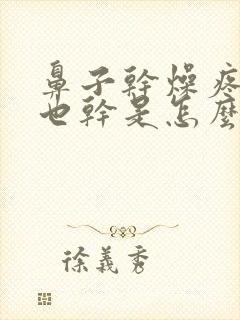 鼻子幹燥疼
也幹是怎麼
徐義秀